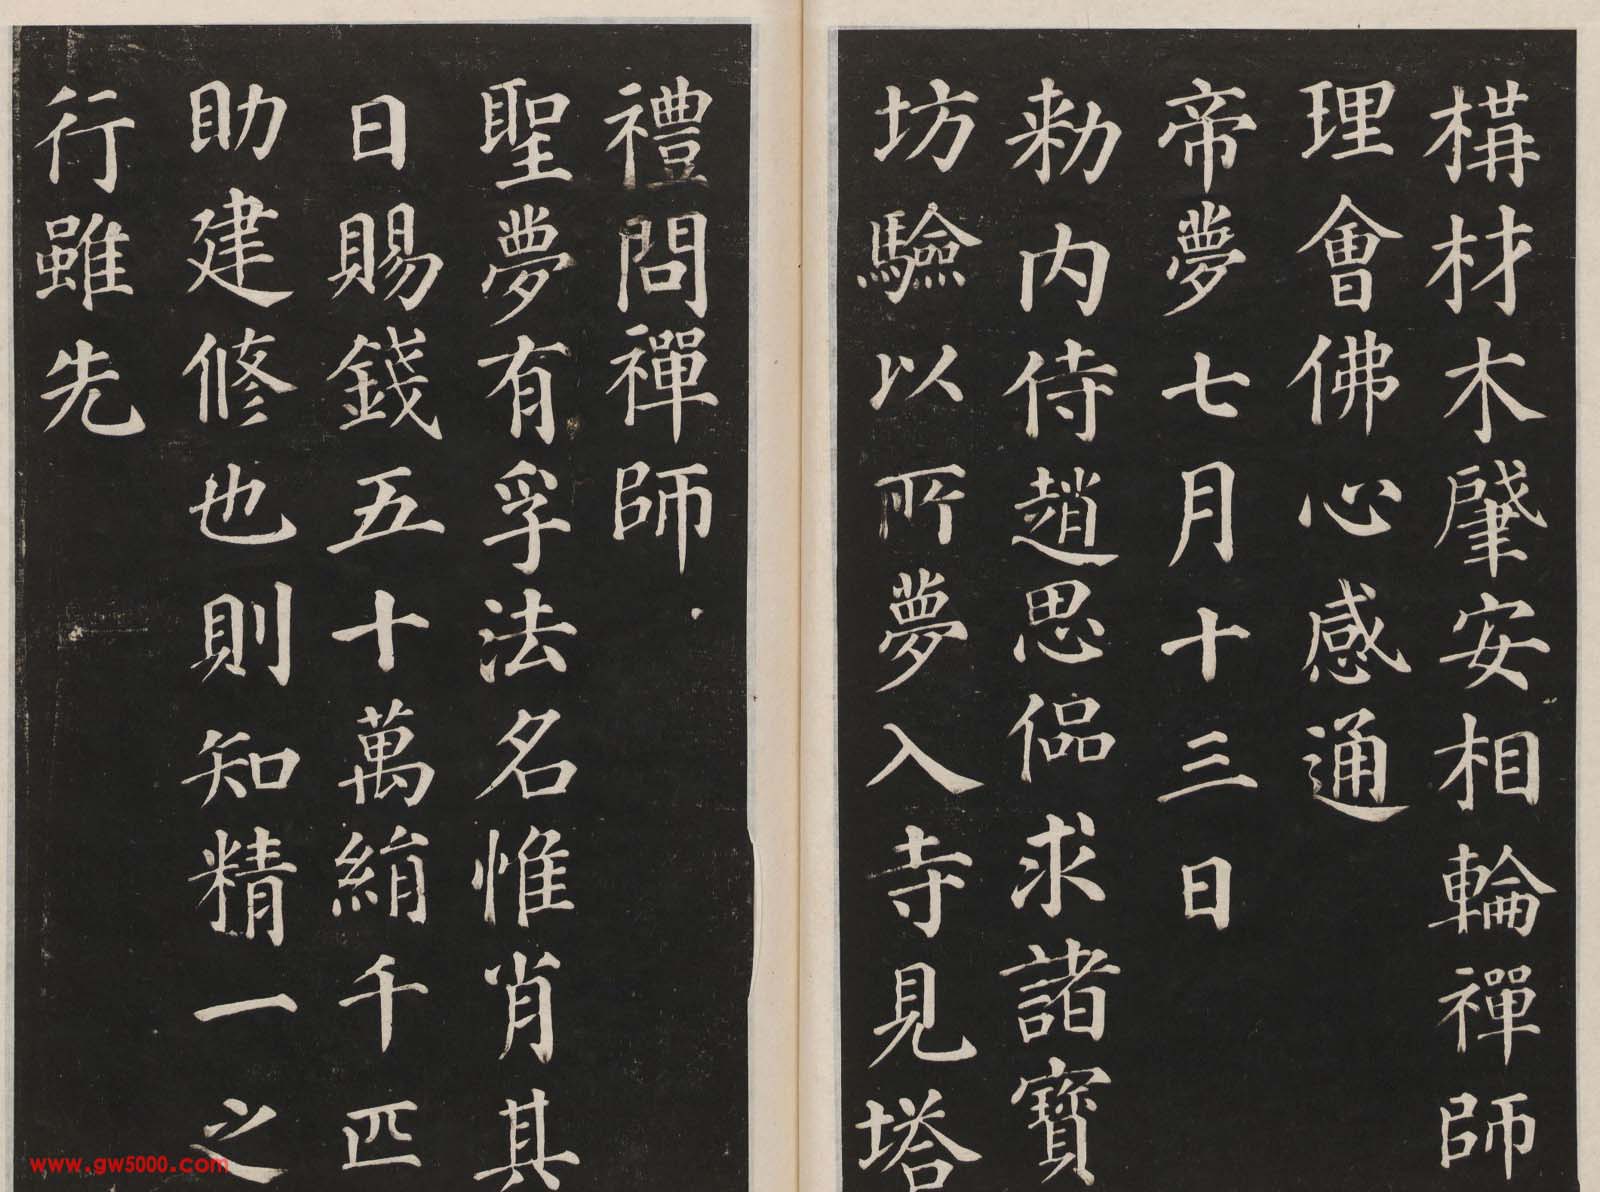 構材木肇安相輪禪師
理會佛心感通
帝夢七月十三日
勑内侍趙思偘求諸寶
坊驗以所夢入寺見塔
禮問禪師
聖夢有孚法名惟肖其
日賜錢五十萬絹千匹
助建修也則知精一之
行雖先
www.gw5000.com